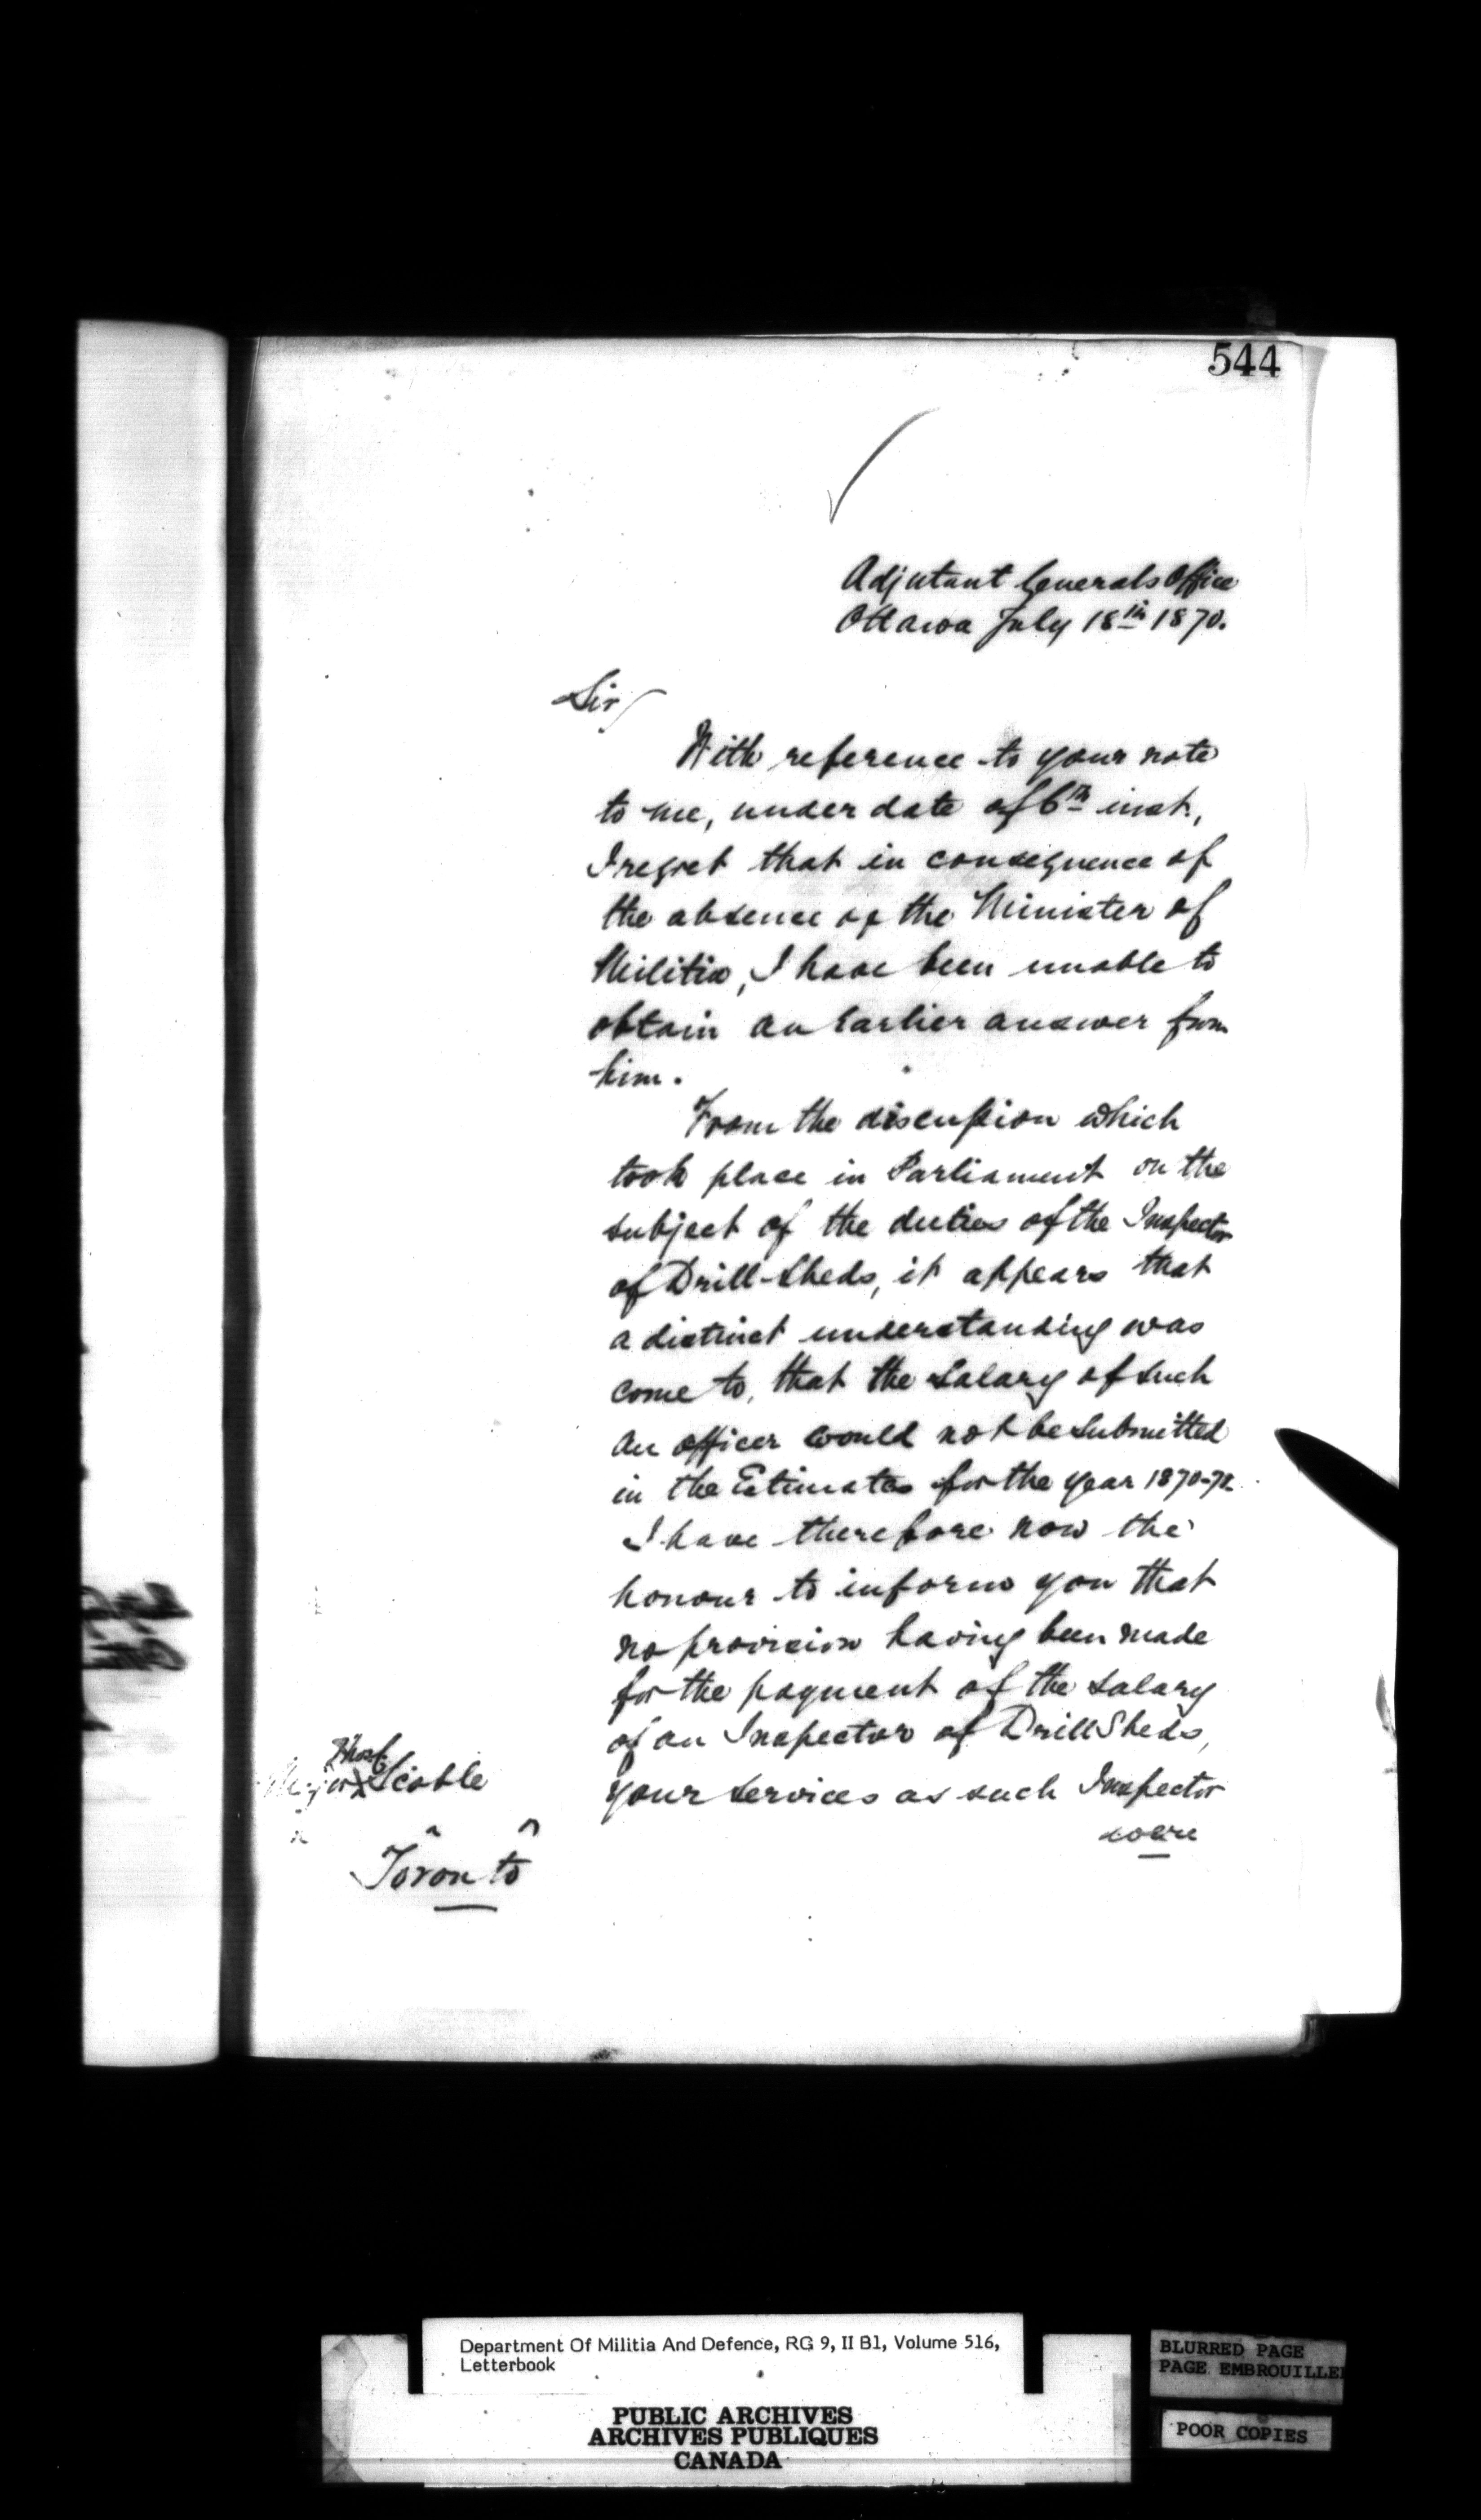 544
Adjutant Generals Office
Ottawa July 18th 1870.
Sir
With reference to your note
to me, under date of 6th inst.,
I regret that in consequence of
the absence of the Minister of
Militia, I have been unable to
obtain an earlier answer from
him.
From the discussion which
took place in Parliament on the
subject of the duties of the Inspector
of Drill-Sheds, it appears that
a distinct understanding was
come to, that the Salary of such
an officer would not be submitted
in the Estimates for the year 1870-71.
I have therefore now the
honour to inform you that
no provision having been made
for the payment of the salary
of an Inspector of Drill Sheds,
your services as such Inspector
Major Scoble
Toronto
Department Of Militia And Defence, RG 9, II B1, Volume 516,
Letterbook
PUBLIC ARCHIVES
ARCHIVES PUBLIQUES
CANADA
BLURRED PAGE
PAGE EMBROUILLE
POOR COPIES